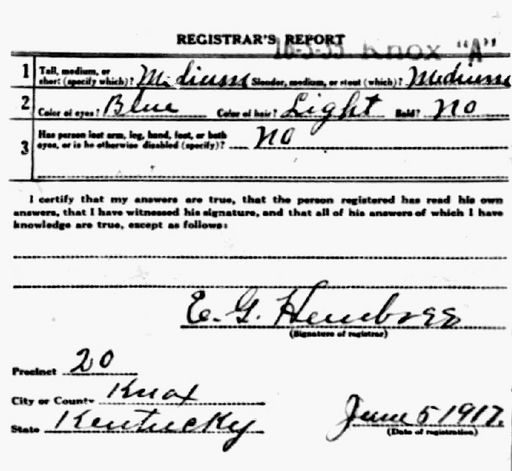 REGISTRAR'S REPORT
16-3-35 Knox "A"
1 Tall, medium, or short (specify which)? Medium Slender, medium, or stout (which)? Medium
2 Color of eyes? Blue Color of hair? Light Bald? No
3 Has person lost arm, leg, hand, foot, or both eyes, or is he otherwise disabled (specify)? No
I certify that my answers are true, that the person registered has read his own
answers, that I have witnessed his signature, and that all of his answers of which I have
knowledge are true, except as follows:
E. G. Hembree
(Signature of registrar)
Precinct 20
City or County Knox
State Kentucky
June 5 1917.
(Date of registration)